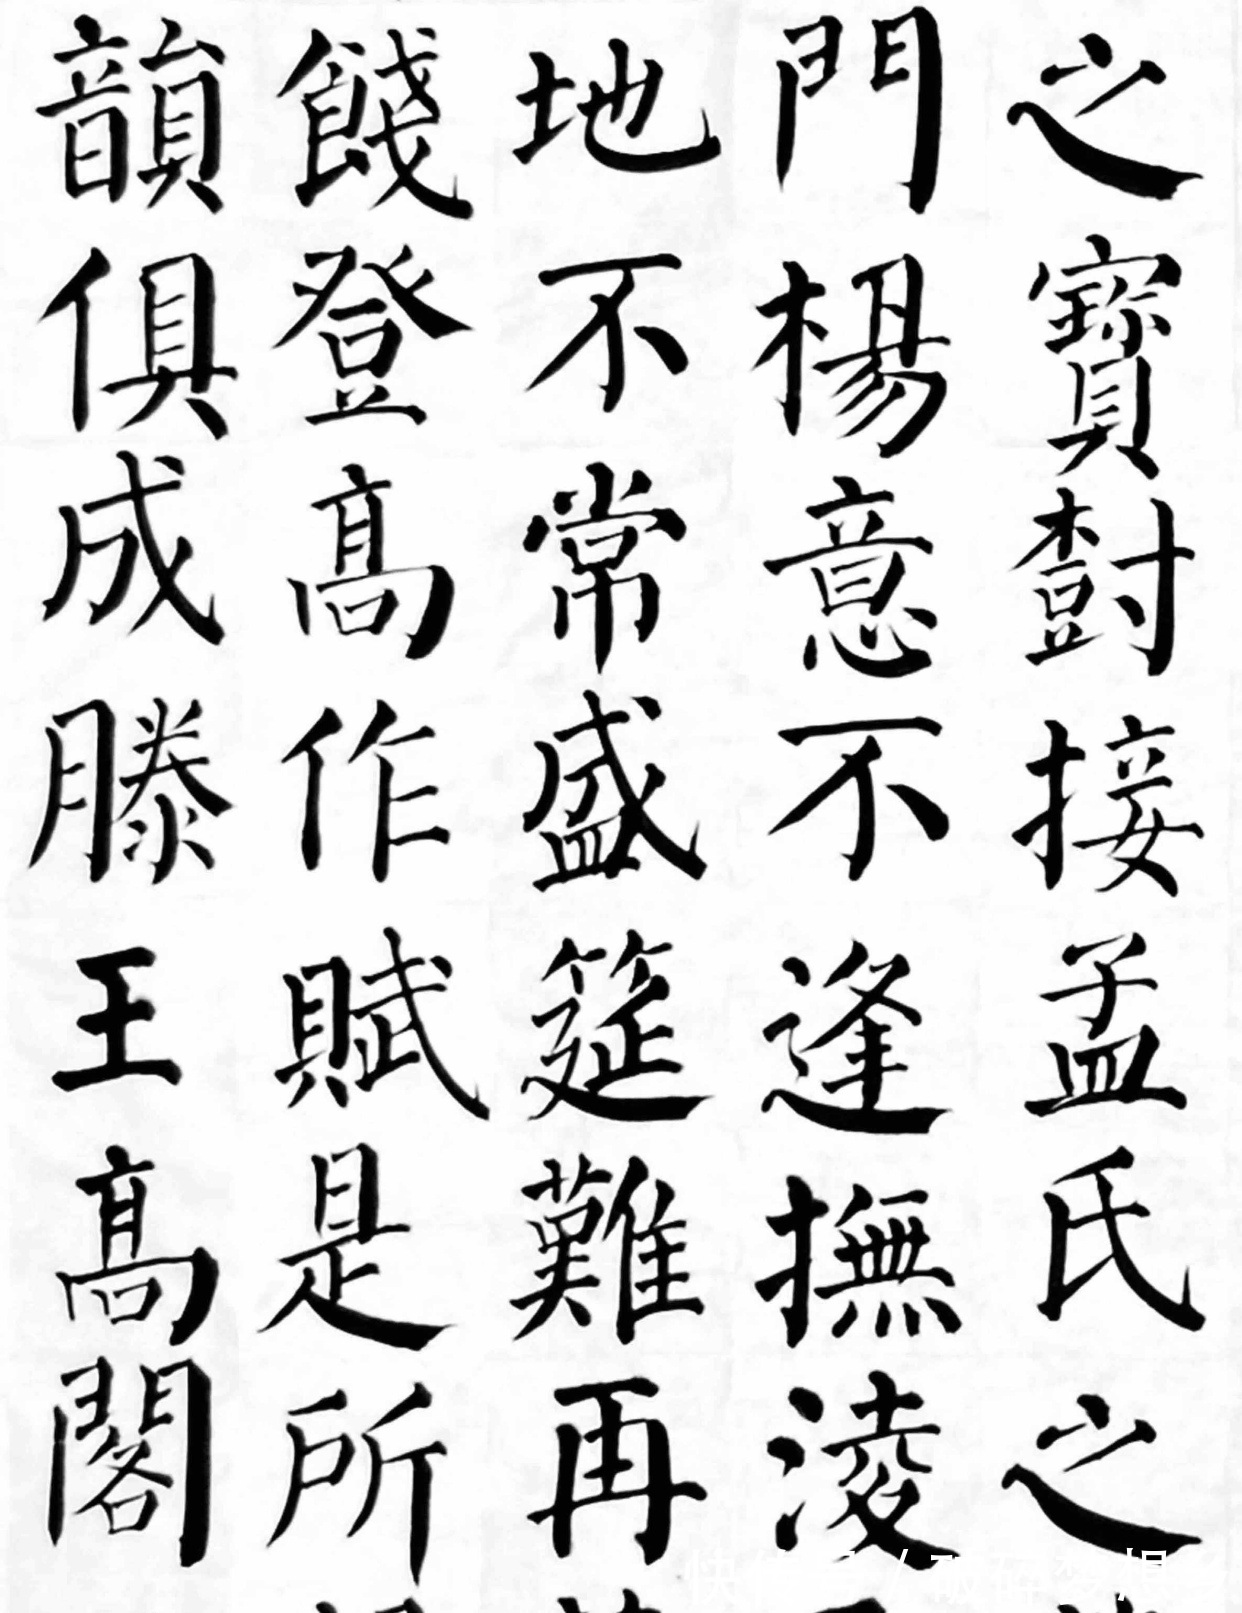 之寶樹接孟氏之
門楊意不逢撫淩
地不常盛筵難再
餞登髙作賦是所
韻俱成滕王髙閣